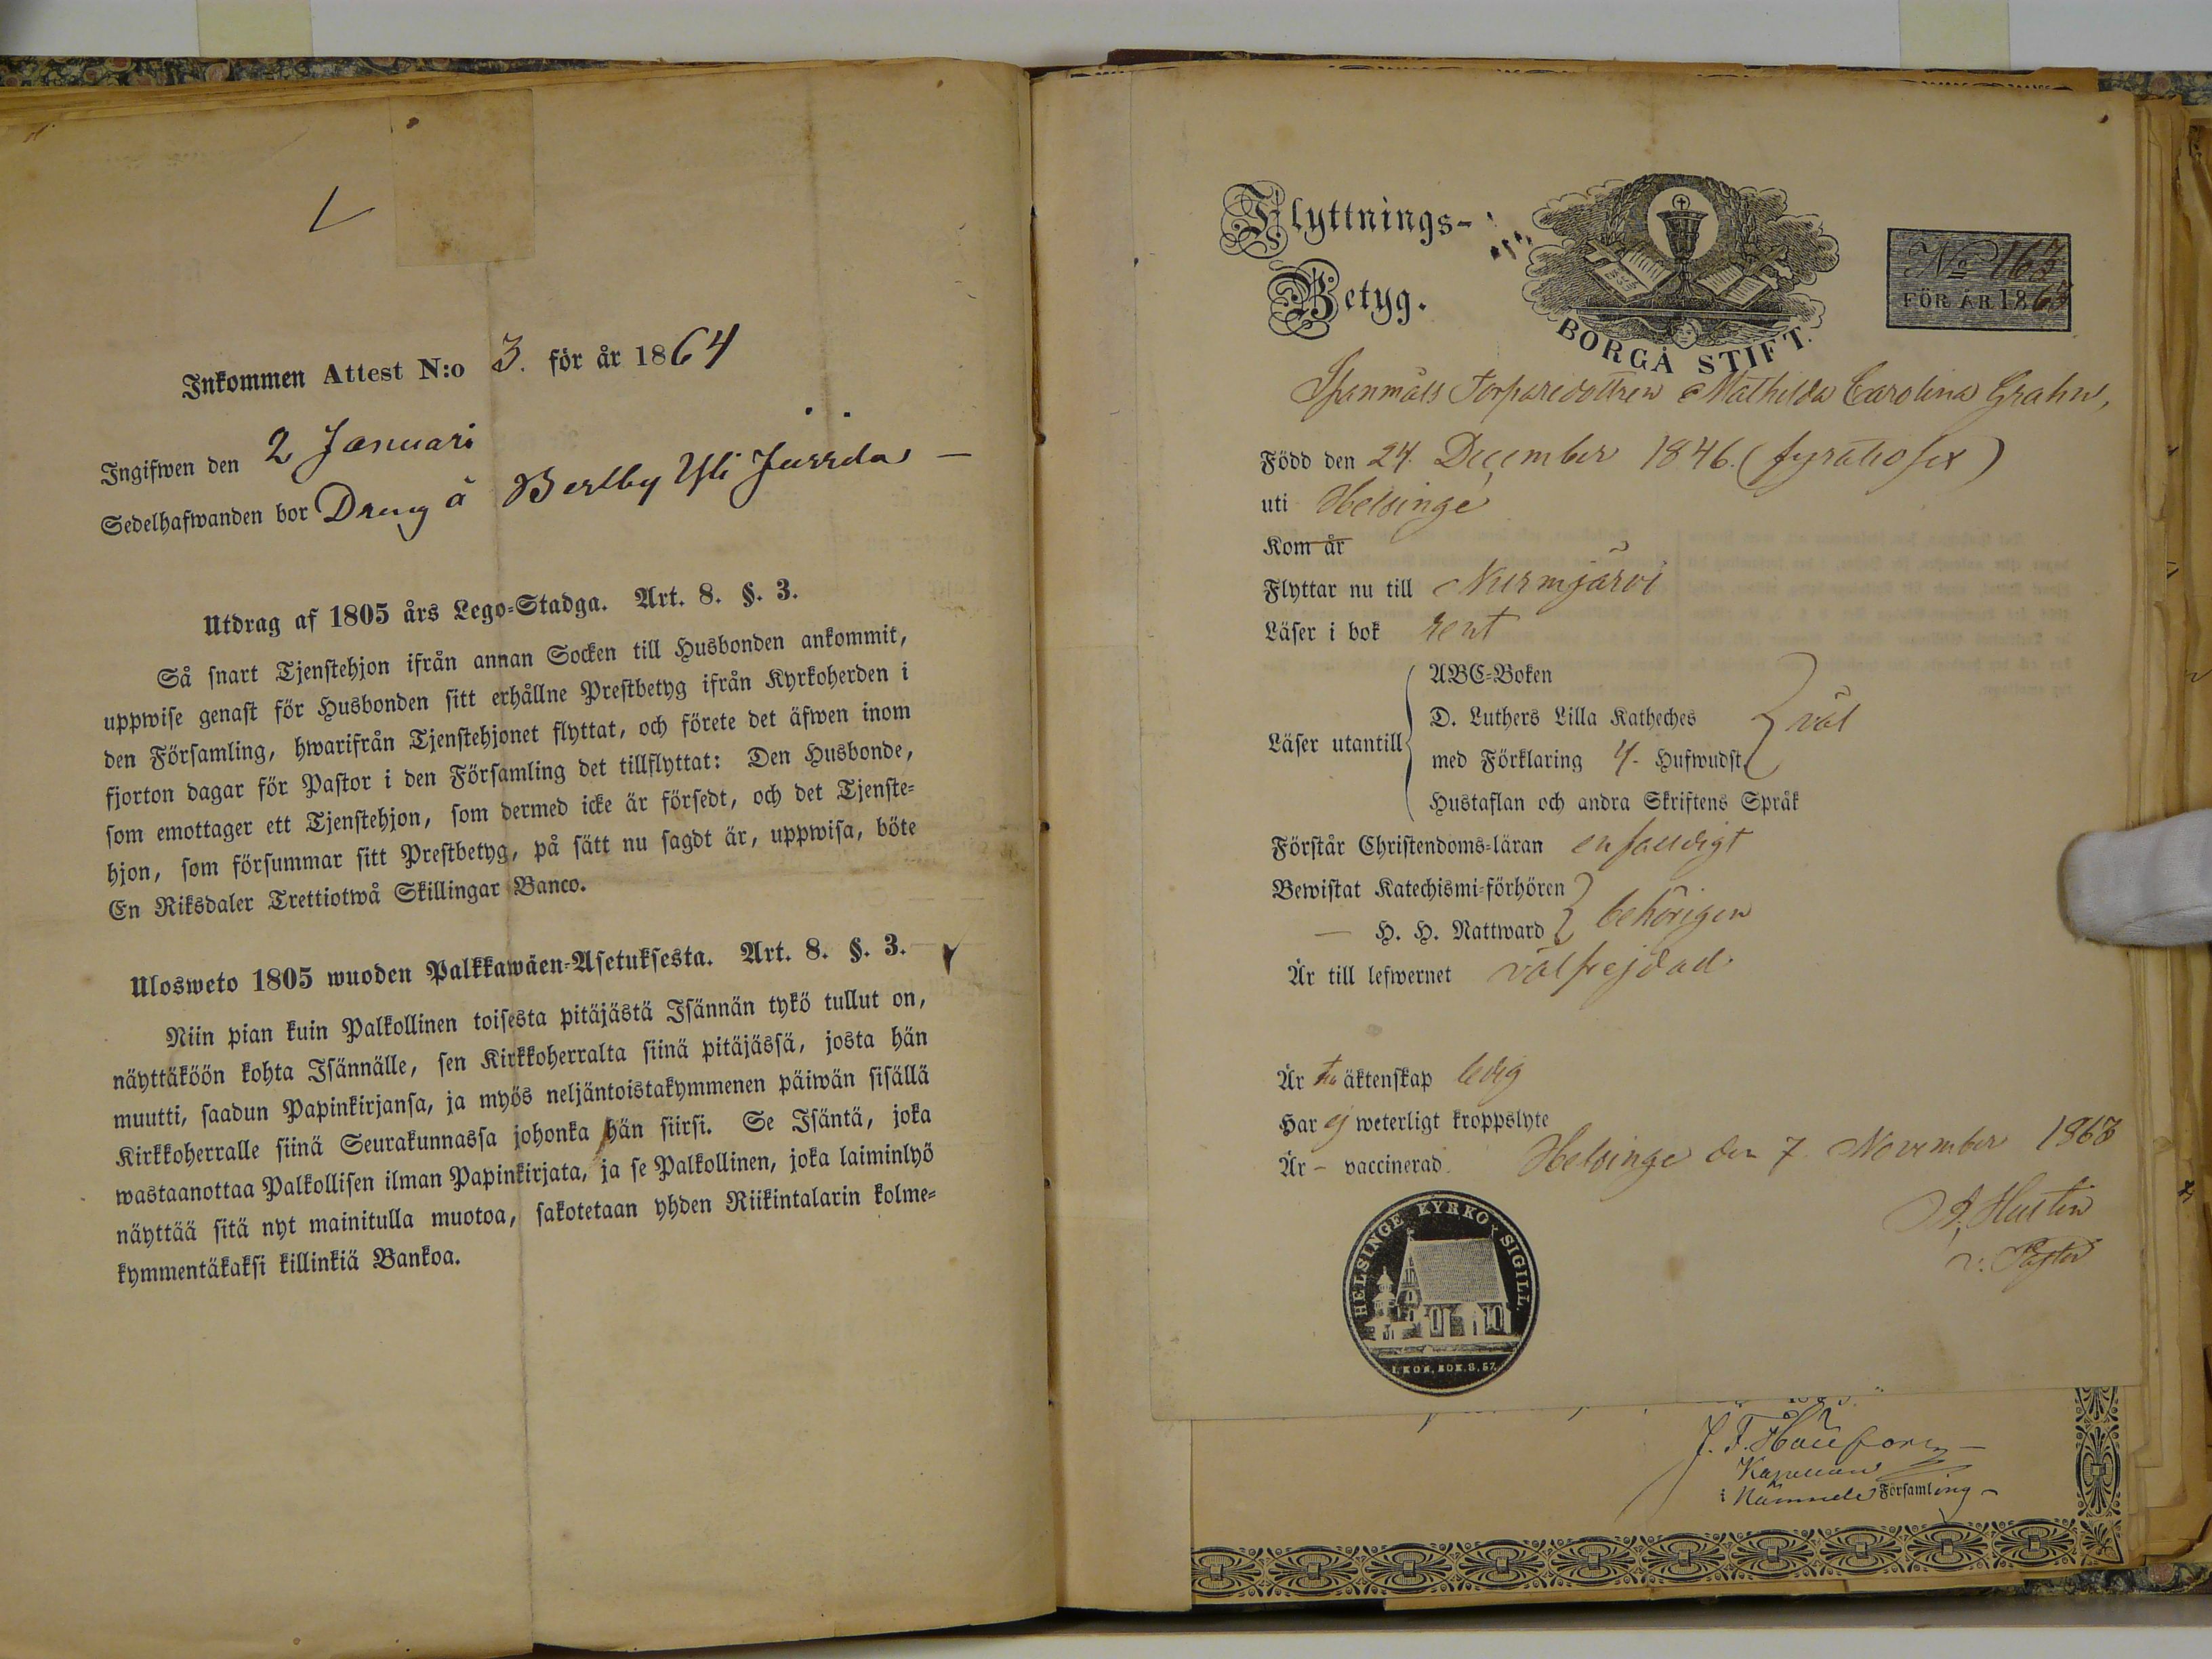 Inkommen Attest N:o 3. för år 1864
Ingifwen den 2 Januari
Sedelhafwanden bor Dreng å
Utdrag af 1805 års Lego-Stadga. Art. 8. §. 3.
Så snart Tjenstehjon ifrån annan Socken till Husbonden ankommit,
uppwise genast för Husbonden sitt erhållne Prestbetyg ifrån Kyrkoherden i
den Församling, hwarifrån Tjenstehjonet flyttat, och förete det äfwen inom
fjorton dagar för Pastor i den Församling det tillflyttat: Den Husbonde,
som emottager ett Tjenstehjon, som dermed icke är försedt, och det Tjenste-
hjon, som försummar sitt Prestbetyg, på sätt nu sagdt är, uppwisa, böte
En Riksdaler Trettiotwå Skillingar Banco.
Ulosweto 1805 wuoden Palkkawäen-Asetuksesta. Art. 8. §. 3.
Niin pian kuin Palkollinen toisesta pitäjästä Isännän tykö tullut on,
näyttäköön kohta Isännälle, sen Kirkkoherralta siinä pitäjässä, josta hän
muutti, saadun Papinkirjansa, ja myös neljäntoistakymmenen päiwän sisällä
Kirkkoherralle siinä Seurakunnassa johonka hän siirsi. Se Isäntä, joka
wastaanottaa Palkollisen ilman Papinkirjata, ja se Palkollinen, joka laiminlyö
näyttää sitä nyt mainitulla muotoa, sakotetaan yhden Riikintalarin kolme-
kymmentäkaksi killinkiä Bankoa.
Flyttnings-
Betyg.
BORGÅ STIFT.
No 163
FÖR ÅR 1863
Torparedottren Mathilda Carolina Grahn,
Född den 24. December 1846. (fyratiosex)
uti Helsinge
Kom år
Flyttar nu till Nurmijärvi
Läser i bok rent
ABC-Boken
D. Luthers Lilla Katheches
Läser utantill väl
med Förklaring 4. Hufwudst.
Hustaflan och andra Skriftens Språk
Förstår Christendoms-läran enfaldigt
Bewistat Katechismi-förhören
— H. H. Nattward behörigen
Är till lefwernet välfrejdad
Är till äktenskap ledig
Har ej weterligt kroppslyte
Är – vaccinerad. Helsinge den 7 November 1863
v. Pastor
HELSINGE KYRKO SIGILL.
I. KON. BOK. 8. 57.
J. F.
Kapellan
i Nämnde Församling